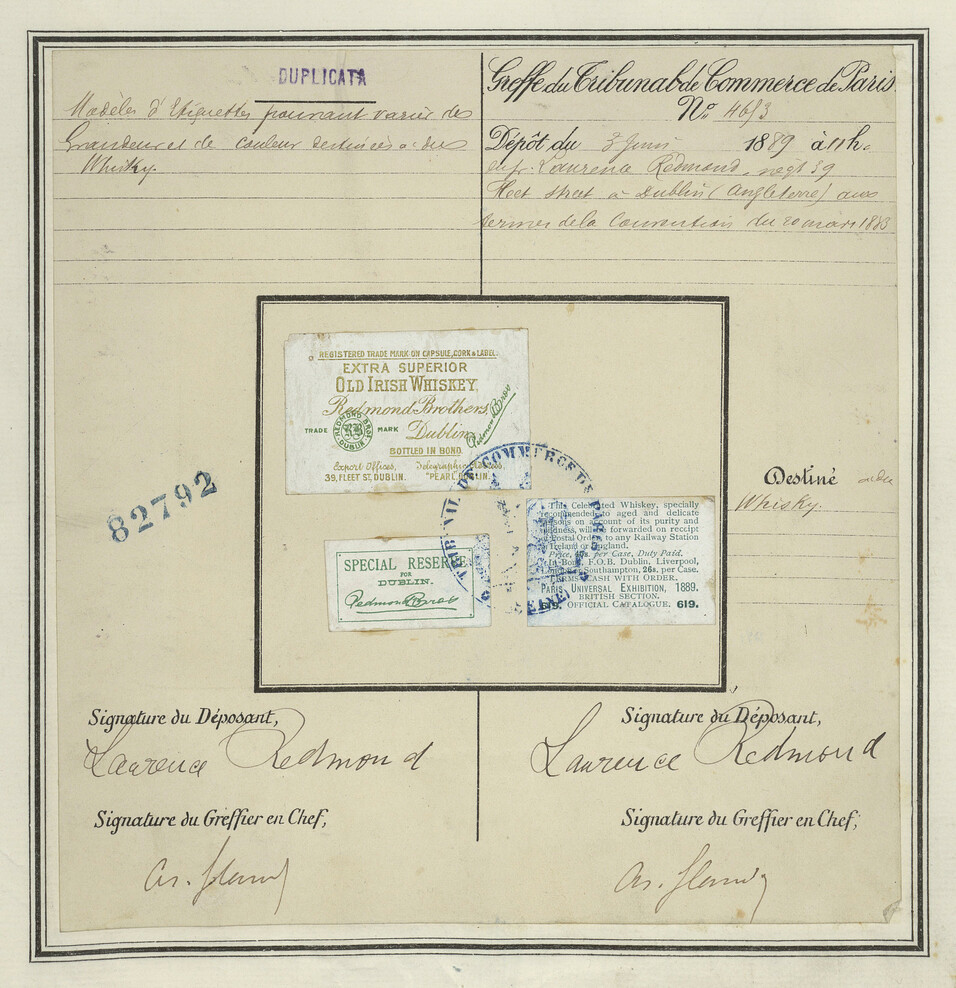 DUPLICATA
Modèles d'Etiquettes pouvant varier de
Grandeur et de couleur destinées à du
Whisky.
Greffe du Tribunal de Commerce de Paris
No. 4653
Dépôt du 3 Juin 1889 à 11 h.
Laurence Redmond, négt 39
Fleet street à Dublin (Angleterre) aux
termes de la Convention du 20 mars 1883
82792
REGISTERED TRADE MARK ON CAPSULE, CORK & LABEL.
EXTRA SUPERIOR
OLD IRISH WHISKEY,
Redmond Brothers,
TRADE MARK Dublin
REDMOND BROS DUBLIN
Redmond Bros
BOTTLED IN BOND.
Export Offices, Telegraphic Address,
39, FLEET ST, DUBLIN. "PEARL, DUBLIN.
SPECIAL RESERVE
FOR
DUBLIN.
Redmond Bros
This Celebrated Whiskey, specially
recommended to aged and delicate
persons on account of its purity and
mildness, will be forwarded on receipt
of Postal Order, to any Railway Station
Ireland or England.
Price, 40s. per Case, Duty Paid.
In-Bond, F.O.B. Dublin, Liverpool,
Southampton, 26s. per Case.
TERMS CASH WITH ORDER.
PARIS UNIVERSAL EXHIBITION, 1889.
BRITISH SECTION.
619. OFFICIAL CATALOGUE. 619.
TRIBUNAL DE COMMERCE DE PARIS
(SEINE)
Destiné à du
Whisky.
Signature du Déposant,
Laurence Redmond
Signature du Greffier en Chef,
Signature du Déposant,
Laurence Redmond
Signature du Greffier en Chef,